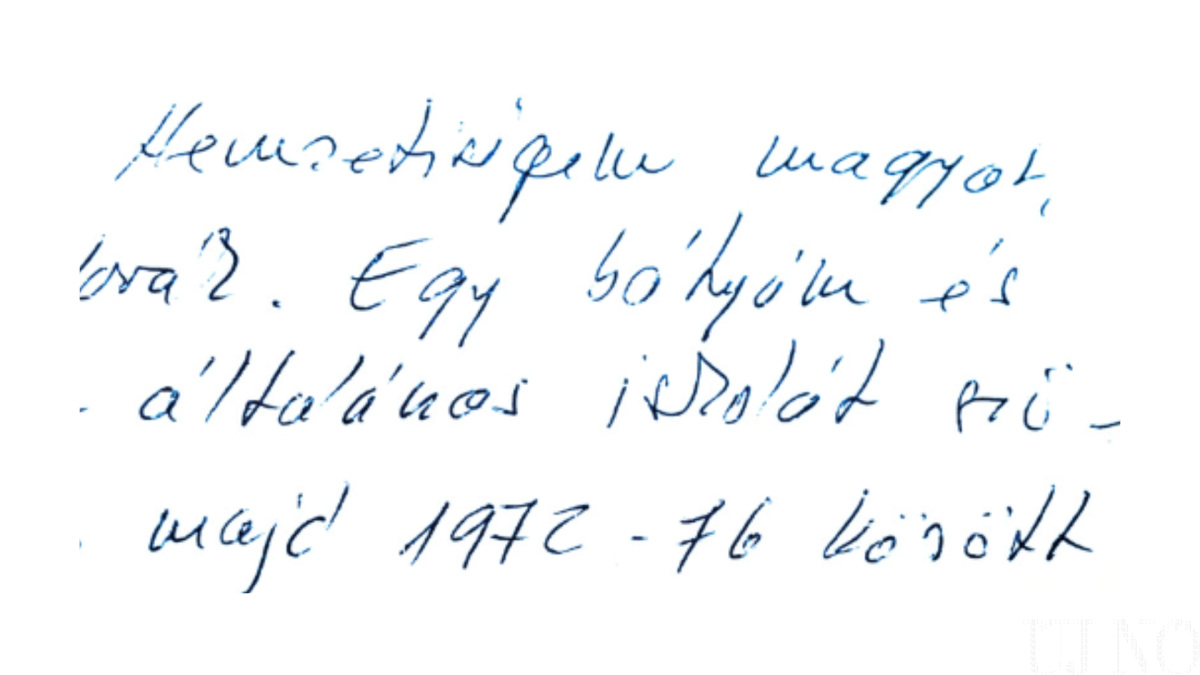 Nemzetiségem magyar,
Egy bátyám és
- általános iskolát szü-
majd 1972-76 között
ÚJ NŐ